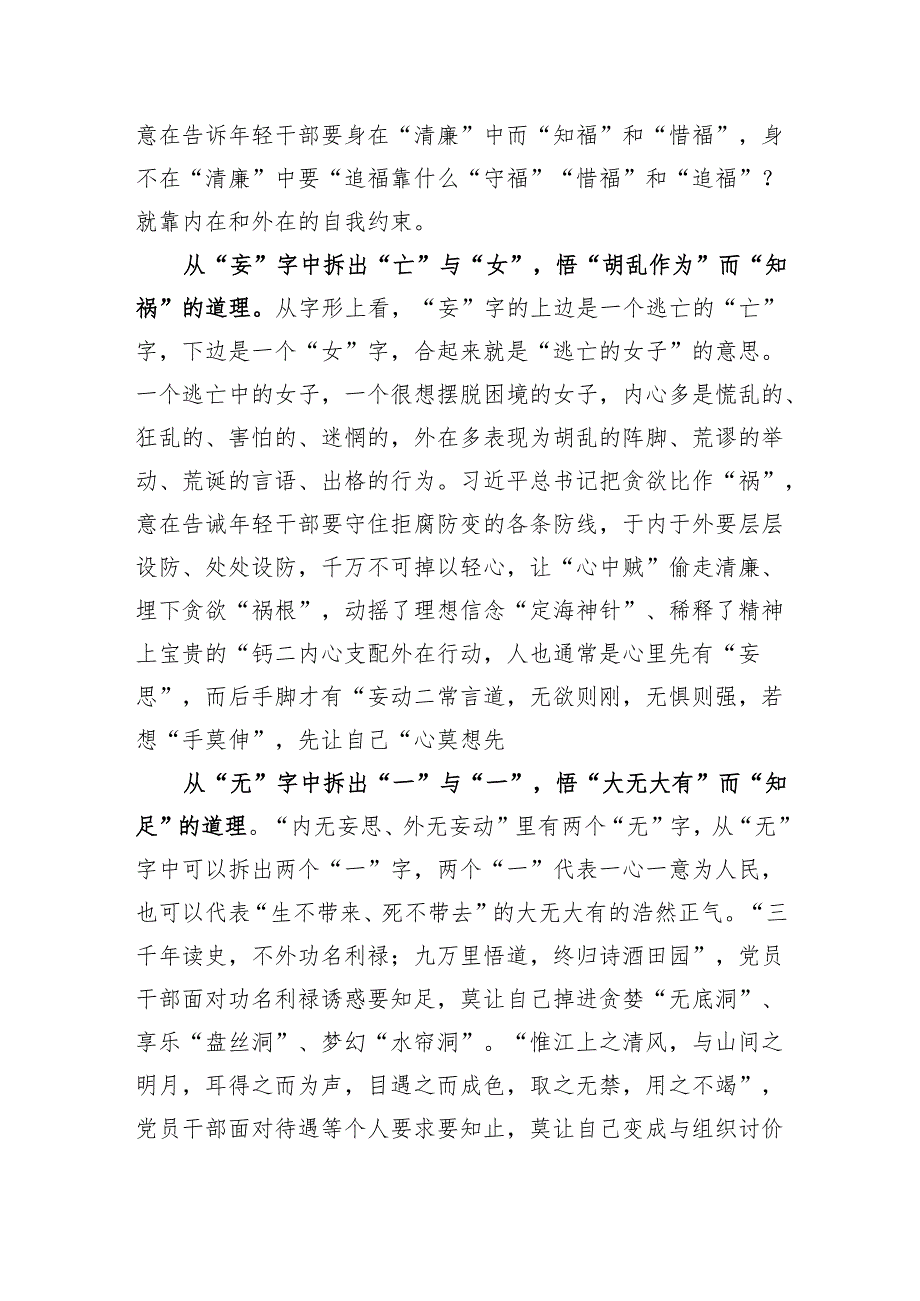 意在告诉年轻干部要身在“清廉”中而“知福”和“惜福”，身
不在“清廉”中要“追福靠什么“守福”“惜福”和“追福”？
就靠内在和外在的自我约束。
从“妄”字中拆出“亡”与“女”，悟“胡乱作为”而“知
祸”的道理。从字形上看，“妄”字的上边是一个逃亡的“亡”
字，下边是一个“女”字，合起来就是“逃亡的女子”的意思。
一个逃亡中的女子，一个很想摆脱困境的女子，内心多是慌乱的、
狂乱的、害怕的、迷惘的，外在多表现为胡乱的阵脚、荒谬的举
动、荒诞的言语、出格的行为。习近平总书记把贪欲比作“祸”，
意在告诫年轻干部要守住拒腐防变的各条防线，于内于外要层层
设防、处处设防，千万不可掉以轻心，让“心中贼”偷走清廉、
埋下贪欲“祸根”，动摇了理想信念“定海神针”、稀释了精神
上宝贵的“钙二内心支配外在行动，人也通常是心里先有“妄
思”，而后手脚才有“妄动二常言道，无欲则刚，无惧则强，若
想“手莫伸”，先让自己“心莫想先
从“无”字中拆出“一”与“一”，悟“大无大有”而“知
足”的道理。“内无妄思、外无妄动”里有两个“无”字，从“无”
字中可以拆出两个“一”字，两个“一”代表一心一意为人民，
也可以代表“生不带来、死不带去”的大无大有的浩然正气。“三
千年读史，不外功名利禄；九万里悟道，终归诗酒田园”，党员
干部面对功名利禄诱惑要知足，莫让自己掉进贪婪“无底洞”、
享乐“盘丝洞”、梦幻“水帘洞”。“惟江上之清风，与山间之
明月，耳得之而为声，目遇之而成色，取之无禁，用之不竭”，
党员干部面对待遇等个人要求要知止，莫让自己变成与组织讨价